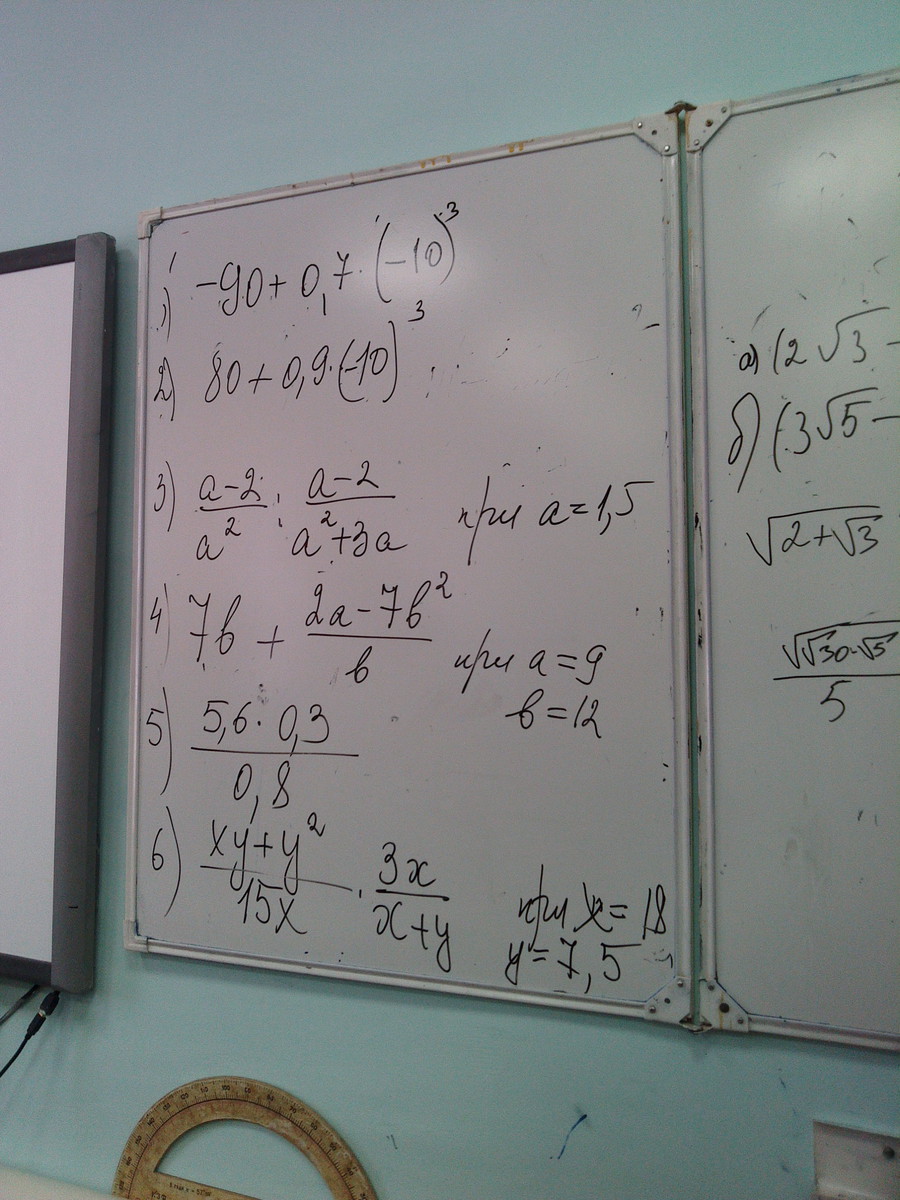 1) -90 + 0,7 · (-10)³
2) 80 + 0,9 · (-10)³
3) a-2/a² : a-2/a²+3a при a = 1,5
4) 7b + 2a-7b²/b при a = 9
b = 12
5) 5,6 · 0,3/0,8
6) xy+y²/15x · 3x/x+y при x = 18
y = 7,5
а) (2√3 -
б) (3√5 -
√2+√3
5